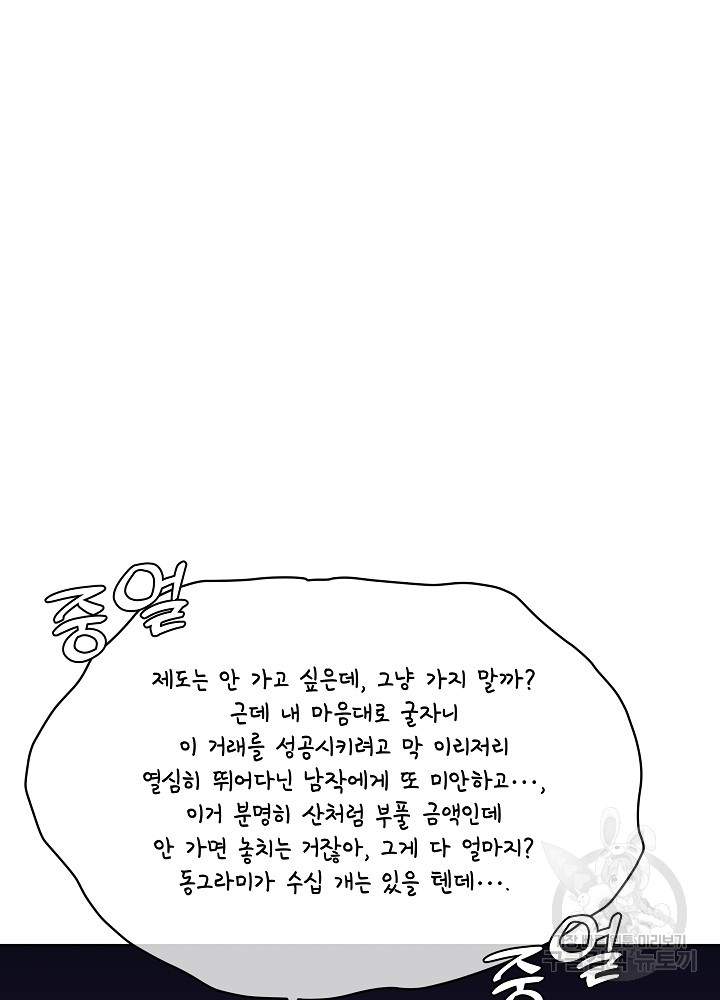 중얼
제도는 안 가고 싶은데, 그냥 가지 말까?
근데 내 마음대로 굴자니
이 거래를 성공시키려고 막 이리저리
열심히 뛰어다닌 남작에게 또 미안하고…,
이거 분명히 산처럼 부풀 금액인데
안 가면 놓치는 거잖아, 그게 다 얼마지?
동그라미가 수십 개는 있을 텐데….
중얼